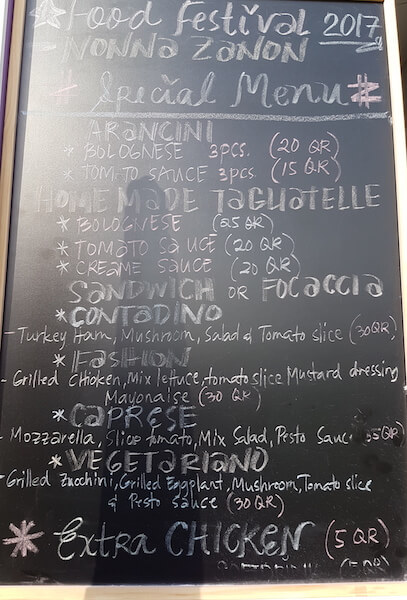 Food Festival 2017
- NONNA ZANON
# Special Menu #
ARANCINI
* BOLOGNESE 3pcs. (20 QR)
* TOMTO SAUCE 3pcs. (15 QR)
HOMEMADE TAGUATELLE
* BOLOGNESE (25 QR)
* TOMATO SAUCE (20 QR)
* CREAME SAUCE (20 QR)
SANDWICH OR FOCACCIA
* CONTADINO
- Turkey Ham, Mushroom, Salad & Tomato slice (30QR)
* FASHION
- Grilled Chicken, Mix lettuce, tomato slice Mustard dressing
Mayonaise (30 QR)
* CAPRESE
- Mozzarella, Slice tomato, Mix Salad, Pesto Sauc 35QR)
* VEGETARIANO
- Grilled Zucchini, Grilled Eggplant, Mushroom, Tomato slice
& Pesto Sauce (30QR)
* Extra CHICKEN (5 QR)